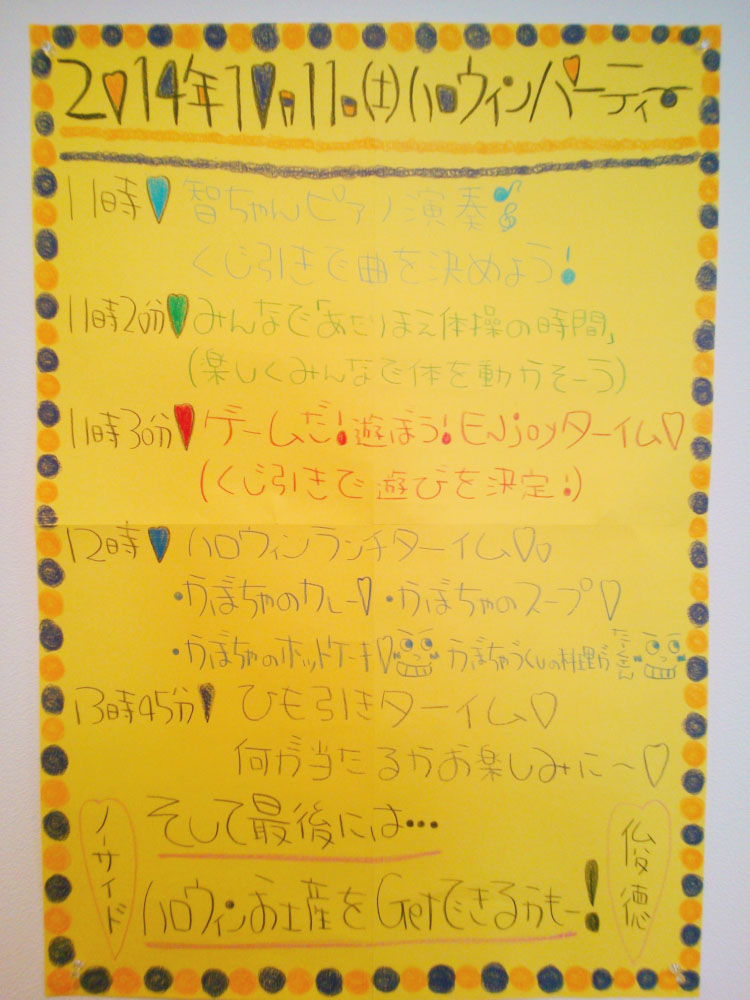 2014年10月11日(土)ハロウィンパーティー
11時 智ちゃんピアノ演奏
くじ引きで曲を決めよう!
11時20分 みんなで「あたりまえ体操の時間」
(楽しくみんなで体を動かそーう)
11時30分 ゲームだ!遊ぼう!Enjoyターイム♡
(くじ引きで遊びを決定!)
12時 ハロウィンランチターイム♡
・かぼちゃのカレー♡ ・かぼちゃのスープ♡
・かぼちゃのホットケーキ♡ かぼちゃづくしの料理がたーくさん
13時45分 ひも引きターイム♡
何が当たるかお楽しみに〜♡
そして最後には…
ハロウィンお土産をGetできるかもー!
ノーサイド
俊徳